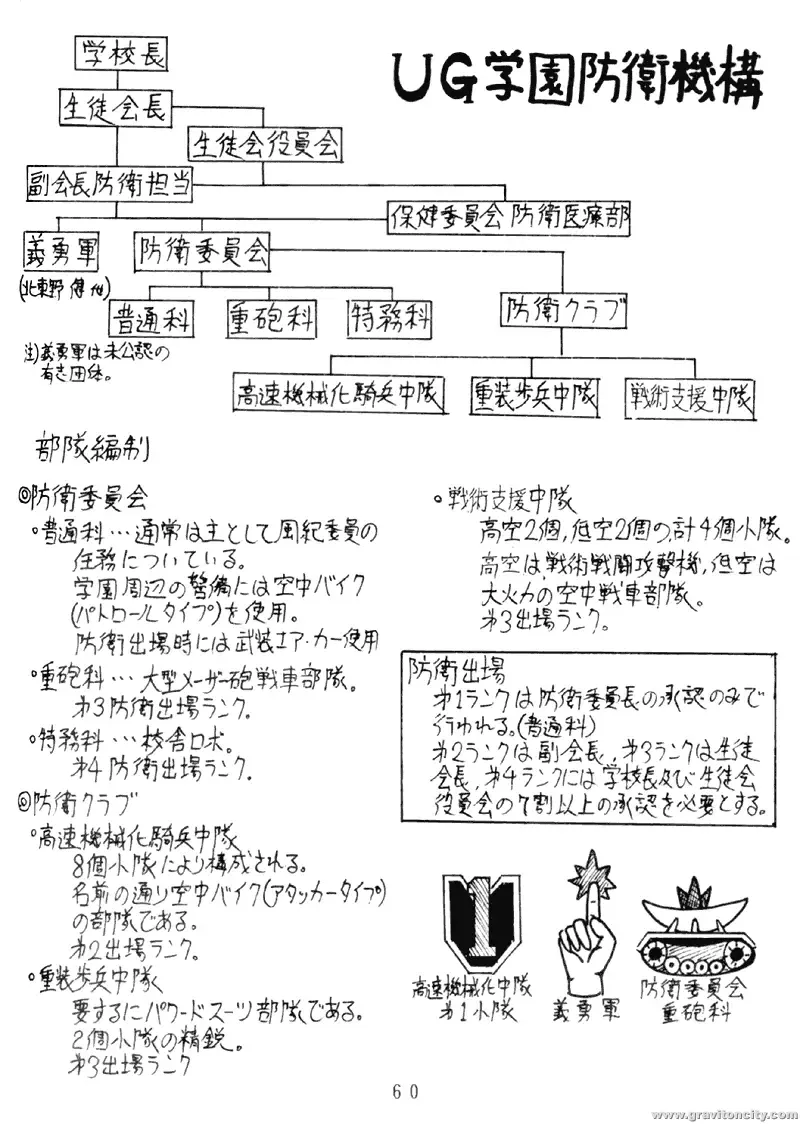 UG学園防衛機構
学校長
生徒会長
生徒会役員会
副会長防衛担当
保健委員会 防衛医療部
義勇軍
防衛委員会
(北東野 健
普通科
重砲科
特務科
防衛クラブ
注)義勇軍は未公認の
有志団体。
高速機械化騎兵中隊
重装歩兵中隊
戦術支援中隊
部隊編制
◎防衛委員会
○普通科…通常は主として風紀委員の
任務についている。
学園周辺の警備には空中バイク
(パトロールタイプ)を使用。
防衛出場時には武装エア・カー使用
○重砲科…大型メーザー砲戦車部隊。
第3防衛出場ランク。
○特務科…校舎ロボ。
第4防衛出場ランク.
◎防衛クラブ
○高速機械化騎兵中隊
8個小隊により構成される。
名前の通り空中バイク(アタッカータイプ)
の部隊である。
第2出場ランク。
○重装歩兵中隊
要するにパワードスーツ部隊である。
2個小隊の精鋭。
第3出場ランク
○戦術支援中隊
高空2個,低空2個の,計4個小隊。
高空は,戦術戦闘攻撃機,低空は
大火力の空中戦車部隊。
第3出場ランク。
防衛出場
第1ランクは防衛委員長の承認のみで
行われる。(普通科)
第2ランクは副会長,第3ランクは生徒
会長,第4ランクには学校長及び生徒会
役員会の7割以上の承認を必要とする。
1
高速機械化中隊
第1小隊
義勇軍
防衛委員会
重砲科
60
www.gravitoncity.com